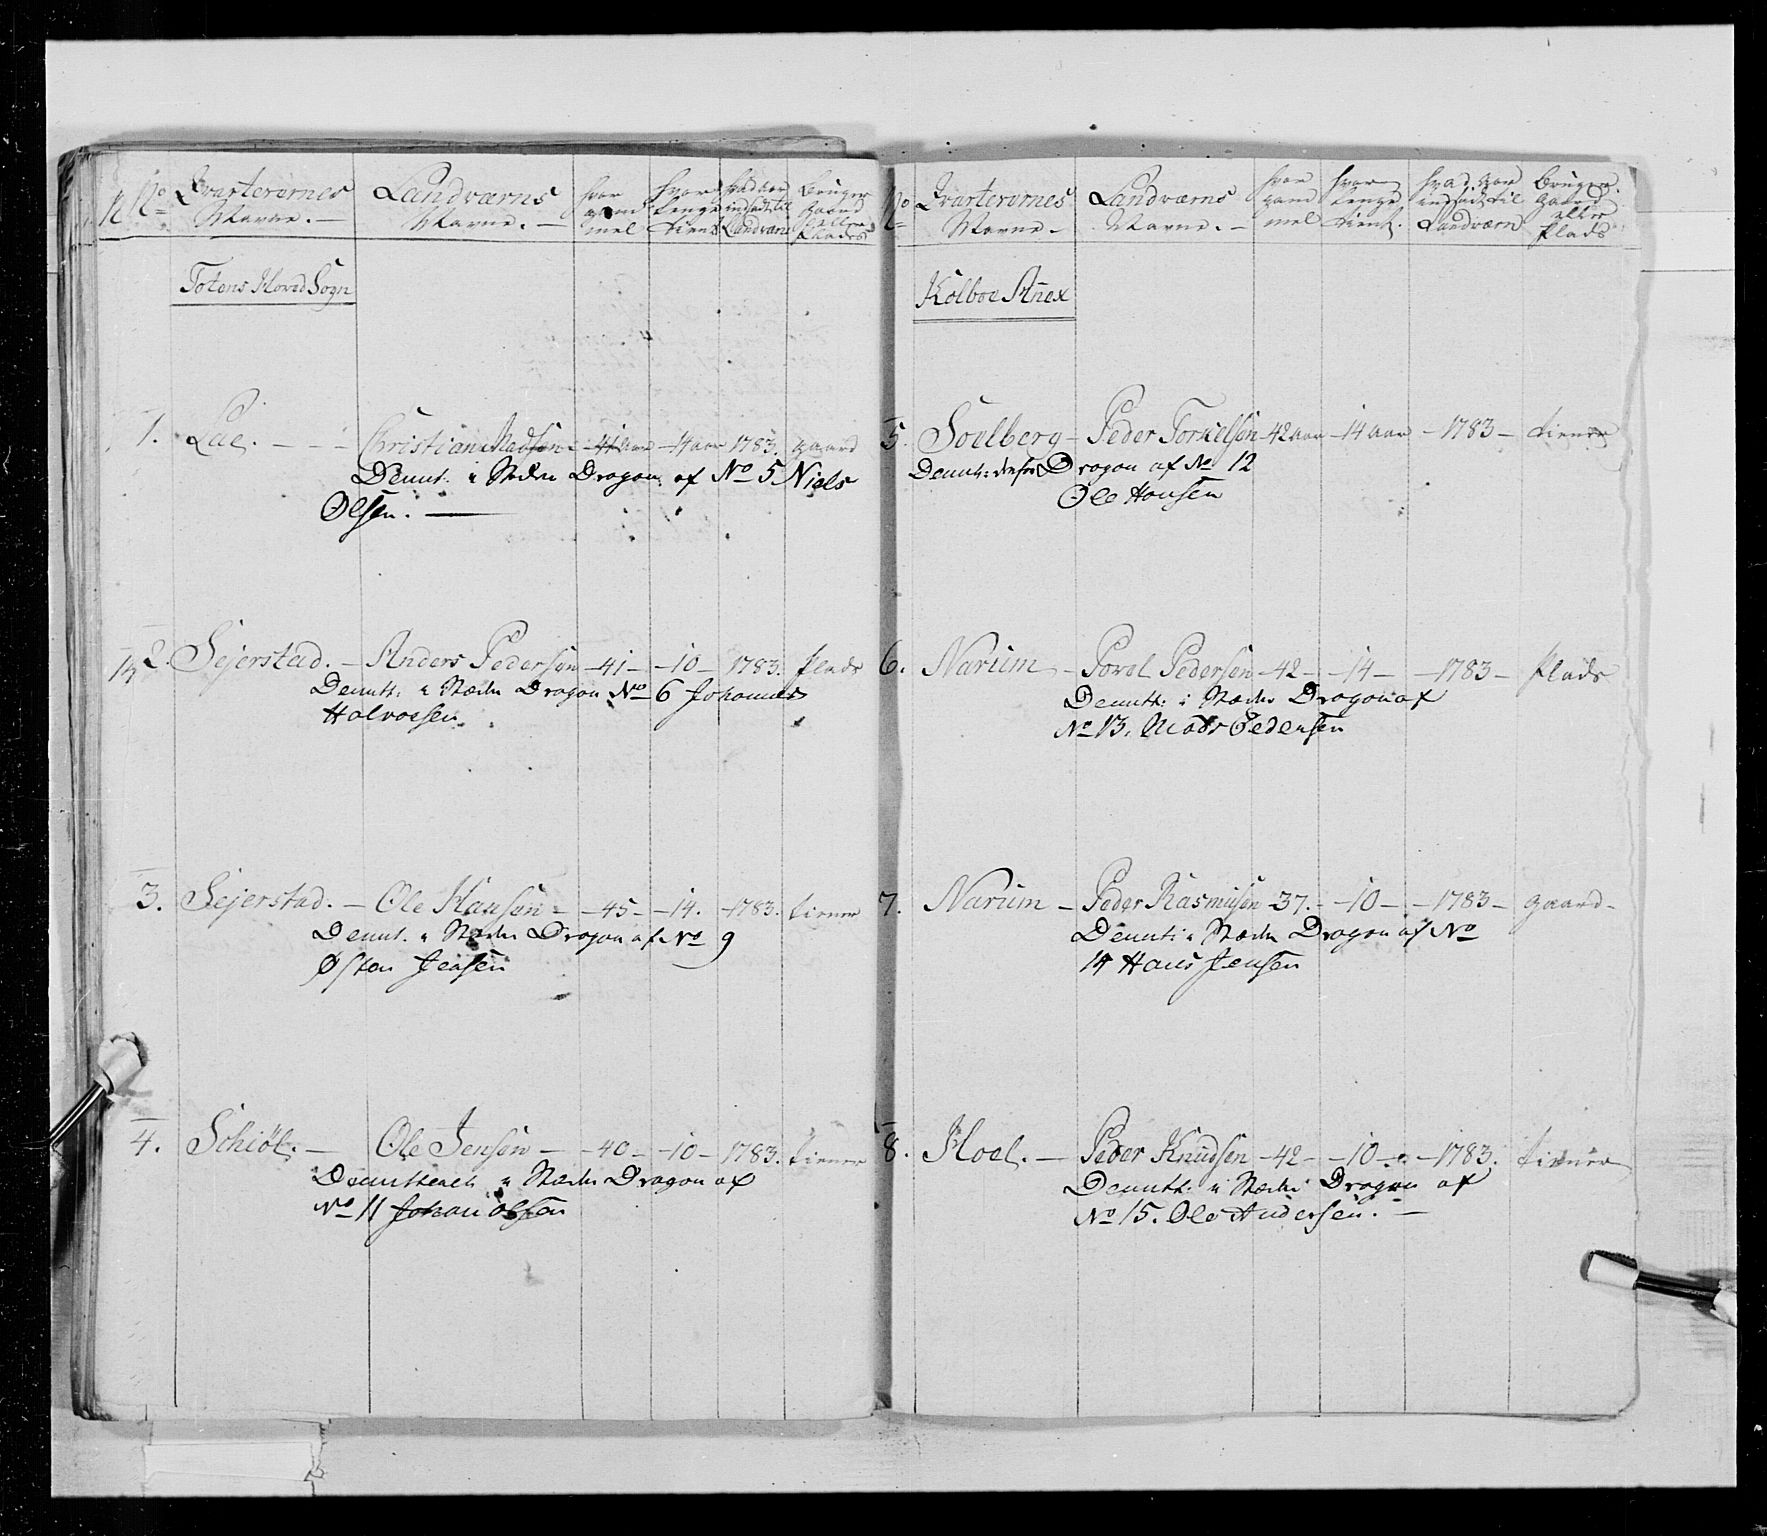 No Qvarterernes Navne. — Landværns Navne. — hvor gammel hvor lenge tient hvad aar indsadt til Landværn bruger gaard eller Plads
Totens Hoved Sogn
1. Lae. — Christian Madsen - 41 aar - 14 aar 1783. gaard
Demt. i Stæden Dragon af No 5 Niels
Olsen. —
2. Sejerstad. — Anders Pedersen - 41 - - 10 - 1783. Plads
Demt: i Stæden Dragon No 6 Johannes
Halvorsen
3. Sejerstad. — Ole Hansen - - 45 - - 14. - 1783. tiener
Demt. i Stæden Dragon af No 9
Østen Jensen
4. Schiøl. — Ole Jensen - - 40 - - 10 - 1783. tiener
i Stæden Dragon af
No 11 Johan Olsen
No Qvarterernes Navne - Landværns Navne. - hvor gammel hvor lenge tient. hvad aar indsadt til Landværn bruger gaard eller Plads
Kolboe Anex
5. Soelberg - Peder Torkelsen - 42 aar - 14 aar - 1783 - tiener
Dragon af No 12
Ole Hansen
6. Narum - Povel Pedersen - 42 - - 14 - - 1783 - Plads
Demt: i Stæden Dragon af
No 13. Mads Pedersen
7. Narum - Peder Rasmusen - 37. - - 10 - - 1783 - gaard -
Demt: i Stæden Dragon af No
14 Hans Jensen
8. Hoel. — Peder Knudsen - 42 - - 10 - - 1783. tiener
Demt: i Stæden Dragon af
No 15. Ole Andersen. —